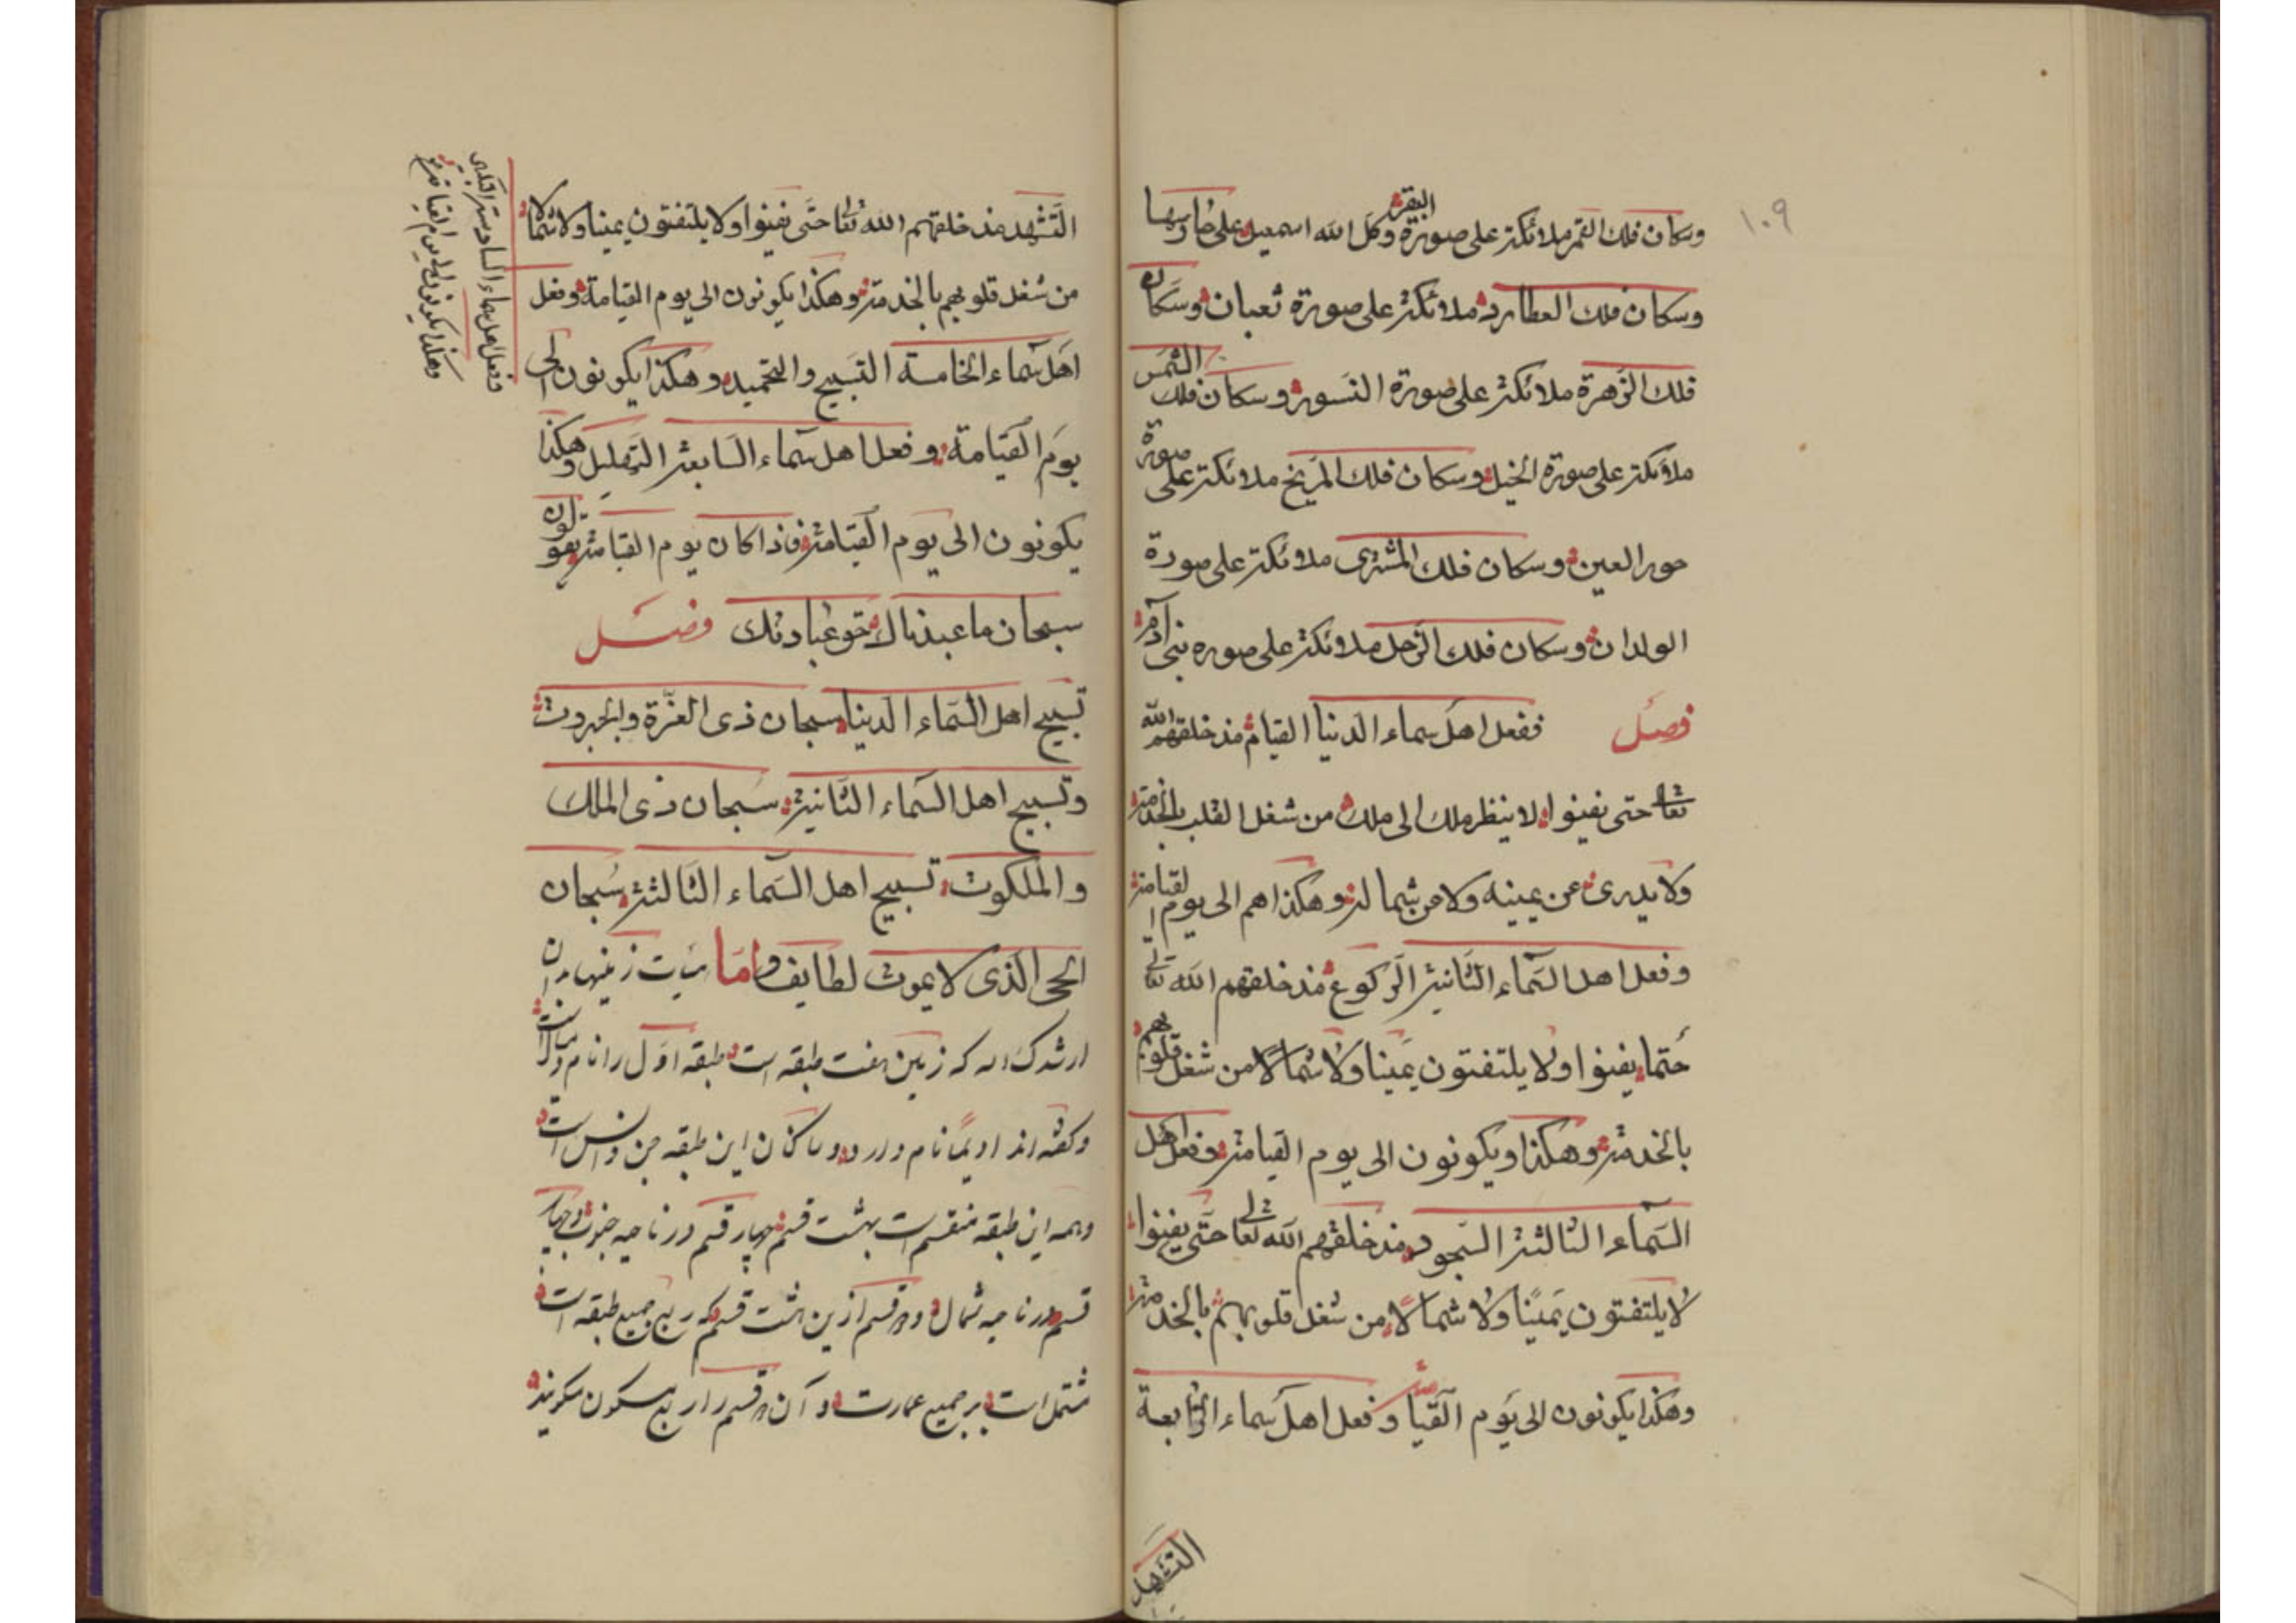 ١٠٩
وسكان فلك القمر ملائكة على صورة البقر وكل الله اسمعيل على حارسها
وسكان فلك العطارد ملائكة على صورة ثعبان وسكان
فلك الزهرة ملائكة على صورة النسور وسكان فلك الشمس
ملائكة على صورة الخيل وسكان فلك المريخ ملائكة على صورة
حور العين وسكان فلك المشترى ملائكة على صورة
الولدان وسكان فلك الزحل ملائكة على صوره بنى آدم
فصل ففعل اهل سماء الدنيا القيام منذ خلقهم الله
تعالى حتى يفينوا لا ينظر ملك الى ملك من شغل القلب بالخدمة
ولا يدرى عن يمينه ولا من شماله وهكذا هم الى يوم القيامة
وفعل اهل السماء الثانية الركوع منذ خلقهم الله تعالى
حتما يفينوا ولا يلتفتون يمينا ولا شمالا من شغل قلوبهم
بالخدمة وهكذا ويكونون الى يوم القيامة وفعل اهل
السماء الثالثة السجود منذ خلقهم الله تعالى حتى يفينوا
لا يلتفتون يمينا ولا شمالا من شغل قلوبهم بالخدمة
وهكذا يكونون الى يوم القيامة وفعل اهل سماء الرابعة
التشهد
التشهد منذ خلقهم الله تعالى حتى يفينوا ولا يلتفتون يمينا ولا شمالا
من شغل قلوبهم بالخدمة وهكذا يكونون الى يوم القيامة وفعل
اهل سماء الخامسة التسبيح والتحميد وهكذا يكونون الى
يوم القيامة وفعل اهل سماء السابعة التهليل وهكذا
يكونون الى يوم القيامة فذا كان يوم القيامة يقولون
سبحان ما عبدناك حق عبادتك فصل
تسبيح اهل السماء الدنيا سبحان ذى العزة والجبروت
وتسبيح اهل السماء الثانية سبحان ذى الملك
والملكوت تسبيح اهل السماء الثالثة سبحان
الحى الذى لا يموت لطايف واما هيات زمينها بدان
ارشدك الله كه زمين هفت طبقه است طبقه اول را نام
وكفته اند اديما نام دارد و ساكنان اين طبقه جن وانس است
وهمه اين طبقه منقسم است بهشت قسم چهار قسم در ناحيه جنوب وچهار
قسم در ناحيه شمال و هر قسم ازين هشت قسم كه ربع جميع طبقه است
مشتمل است بر جميع عمارت و آن هر قسم را ربع مسكون ميكويند
وفعل اهل سماء السادسة التكبير
وهكذا يكونون الى يوم القيامة